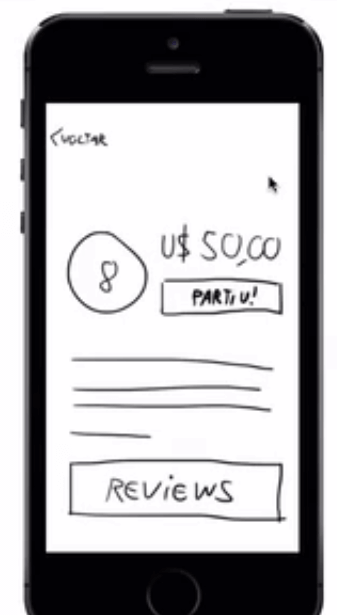 <VOLTAR
U$ 50,00
8
PARTIU!
REVIEWS